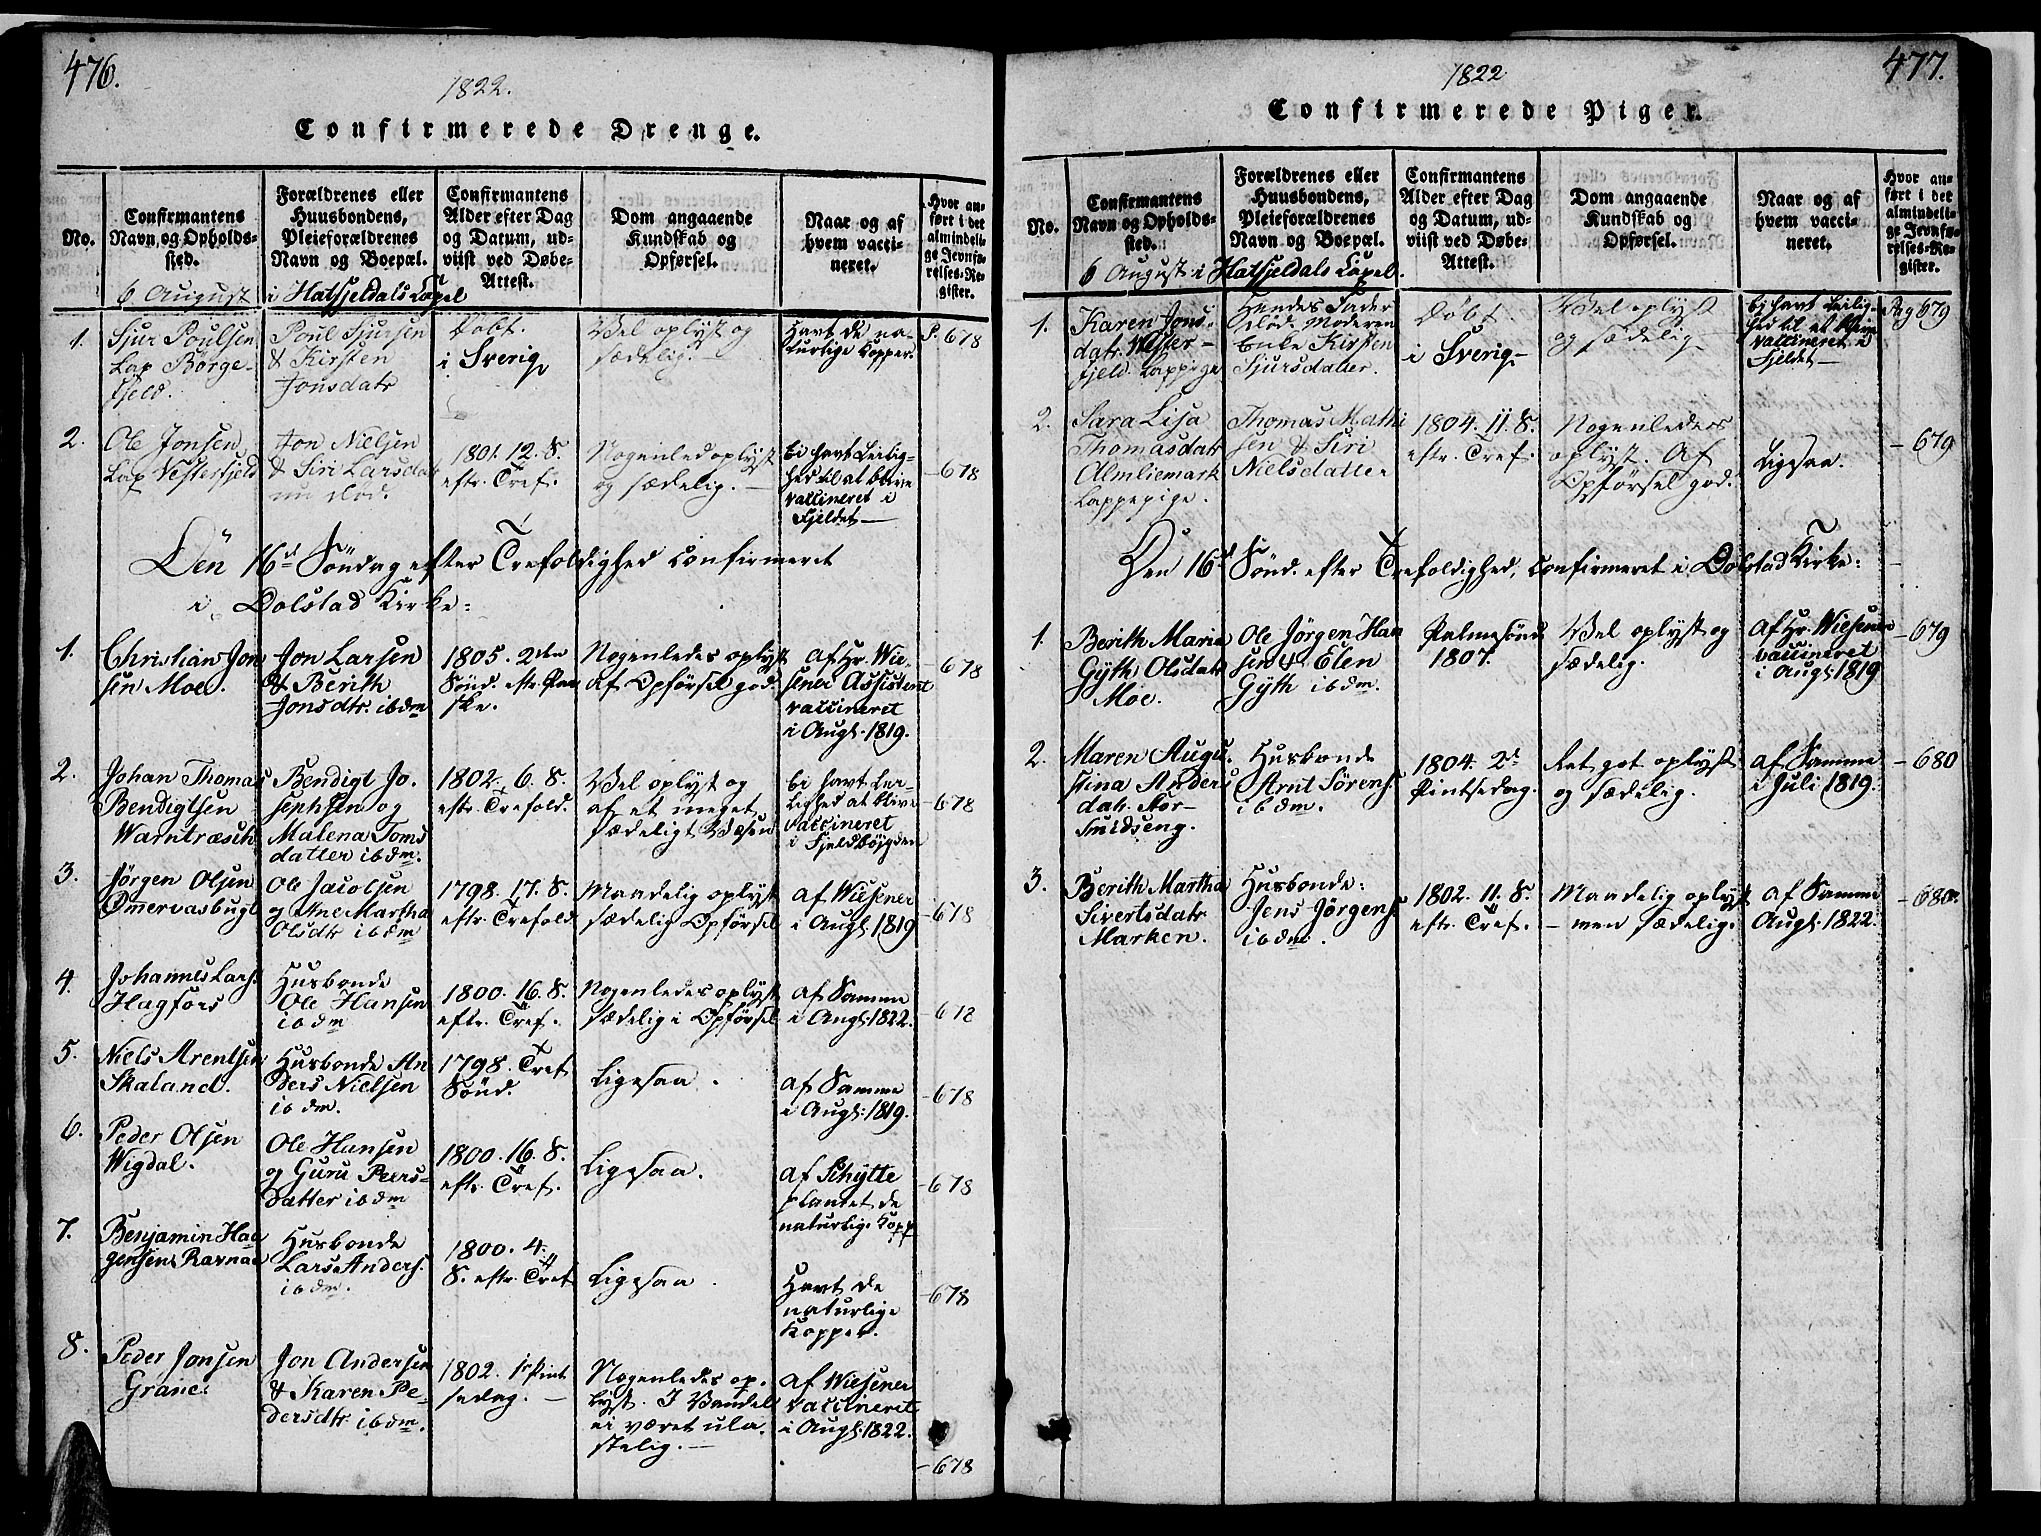 476.
1822.
Confirmerede Drenge.
No.
Confirmantens
Navn og Opholds-
sted.
Forældrenes eller
Huusbondens,
Pleieforældrenes
Navn og Boepæl.
Confirmantens
Alder efter Dag
og Datum, ud-
viist ved Døbe-
Attest.
Dom angaaende
Kundskab og
Opførsel.
Naar og af
hvem vacci-
neret.
Hvor an-
ført i det
almindeli-
ge Jevnfø-
relses-Re-
gister.
6 August i Hatfjeldals Capel
1.
Sjur Poulsen
Lap Børge-
fjeld.
Poul Sjursen
& Kirsten
Jonsdatr
Døbt
i Sverig
Vel oplyst og
sædelig. -
Havt de na-
turlige Kopper.
P. 678
2.
Ole Jonsen
Lap Vesterfjeld
Jon Nielsen
& Siri Larsdatr
nu død.
1801. 12. S.
eftr. Tref.
Nogenled oplyst
og sædelig. -
Ei havt Leilig-
hed til at blive
vaccineret i
Fjeldet -
- 678
Den 16d Søndag efter Trefoldighed confirmeret
i Dolstad Kirke:
1.
Christian Jon
sen Moe.
Jon Larsen
& Berith
Jonsdtr. ibdm
1805. 2den
Sønd. eftr. Paa
ske.
Nogenledes oplyst
af Opførsel god.
af Hr. Wie-
sener Assistent
vaccineret
i Augt. 1819.
- 678
2.
Johan Thomas
Bendigtsen
Warntræsch
Bendigt Jo-
sephsen og
Malena Toms
datter ibdm.
1802. 6. S.
eftr. Trefold.
Vel oplyst og
af et meget
sædeligt Væsen
Ei havt Lei-
lighed at blive
vaccineret
i Fjeldbøigden
- 678
3.
Jørgen Olsen
Ømervasbugt
Ole Jacobsen
og Ane Martha
Olsdtr ibdm
1798. 17. S.
eftr. Trefold
Maadelig oplyst
sædelig Opførsel
af Wiesener
i Augt. 1819
- 678
4.
Johannes Lars.
Hagfors
Husbonde
Ole Hansen
ibdm
1800. 16. S.
eftr. Tref.
Nogenledes oplyst
sædelig i Opførsel
af Samme
i Augt. 1822.
- 678
5.
Niels Arentsen
Skaland.
Husbonde An
ders Nielsen
ibdm.
1798. Tref
Sønd.
Ligesaa.
af Samme
i Augt. 1819.
- 678
6.
Peder Olsen
Wigdal.
Ole Hansen
og Guru Peers-
datter ibdm
1800. 16. S.
eftr. Tref.
Ligesaa.
af Schytte
plantet de
naturlig. Kopp
- 678
7.
Benjamin Haa
gensen Ravnaa
Husbonde
Lars Anders.
ibdm.
1800. 4.
S. eftr. Tref
Ligesaa.
Havt de
naturlige
Kopper.
- 678
8.
Peder Jonsen
Grane
Jon Andersen
& Karen Pe-
dersdtr ibdm.
1802. 1r Pint
sedag. -
Nogenledes op-
lyst. I Vandel
ei været ula-
stelig. -
af Wiesener
vaccineret
i Augt. 1822.
- 678
477.
1822
Confirmerede Piger.
No.
Confirmantens
Navn og Opholds-
sted.
Forældrenes eller
Huusbondens,
Pleieforældrenes
Navn og Boepæl.
Confirmantens
Alder efter Dag
og Datum, ud-
viist ved Døbe-
Attest.
Dom angaaende
Kundskab og
Opførsel.
Naar og af
hvem vacci-
neret.
Hvor an-
ført i det
almindeli-
ge Jevnfø-
relses-Re-
gister.
6 August i Hatfjeldals Capel.
1.
Karen Jons-
datr. Vester-
fjeld. Lappige
Hendes Fader
død. Moderen
Enke Kirsten
Sjursdatter.
Døbt
i Sverig
Vel oplyst
og sædelig
Ei havt Leilig-
hed til at blive
vaccineret i
Fjeldet -
Pag 679
2.
Sara Lisa
Thomasdatr
Almliemark
Lappepige.
Thomas Mathi
sen & Siri
Nielsdatter
1804. 11. S.
eftr. Tref.
Nogenledes
oplyst. Af
Opførsel god.
Ligesaa.
- 679
Den 16d Sønd. efter Trefoldighed, confirmeret i Dolstad Kirke:
1.
Berith Maria
Gÿth Olsdatr
Moe.
Ole Jørgen Han
sen & Elen
Gÿth ibdm.
Palmesønd.
1807.
Vel oplyst og
sædelig.
Af Hr. Wiesener
vaccineret
i Augt 1819
- 679
2.
Maren Augu-
stina Anders
datr.
Smidseng.
Husbonde
Arnt Sørens.
ibdm.
1804. 2d
Pintsedag.
Ret got oplyst
og sædelig.
af Samme
i Juli 1819.
- 680
3.
Berith Martha
Sivertsdatr
Marken.
Husbonde:
Jens Jørgens.
ibdm.
1802. 11. S.
eftr. Tref.
Maadelig oplyst
- men sædelig.
af Samme
Augt. 1822.
- 680.